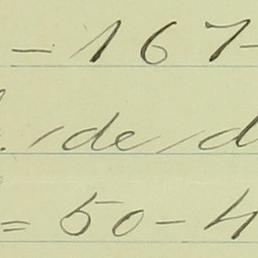 = 167-
. de d
= 50-4